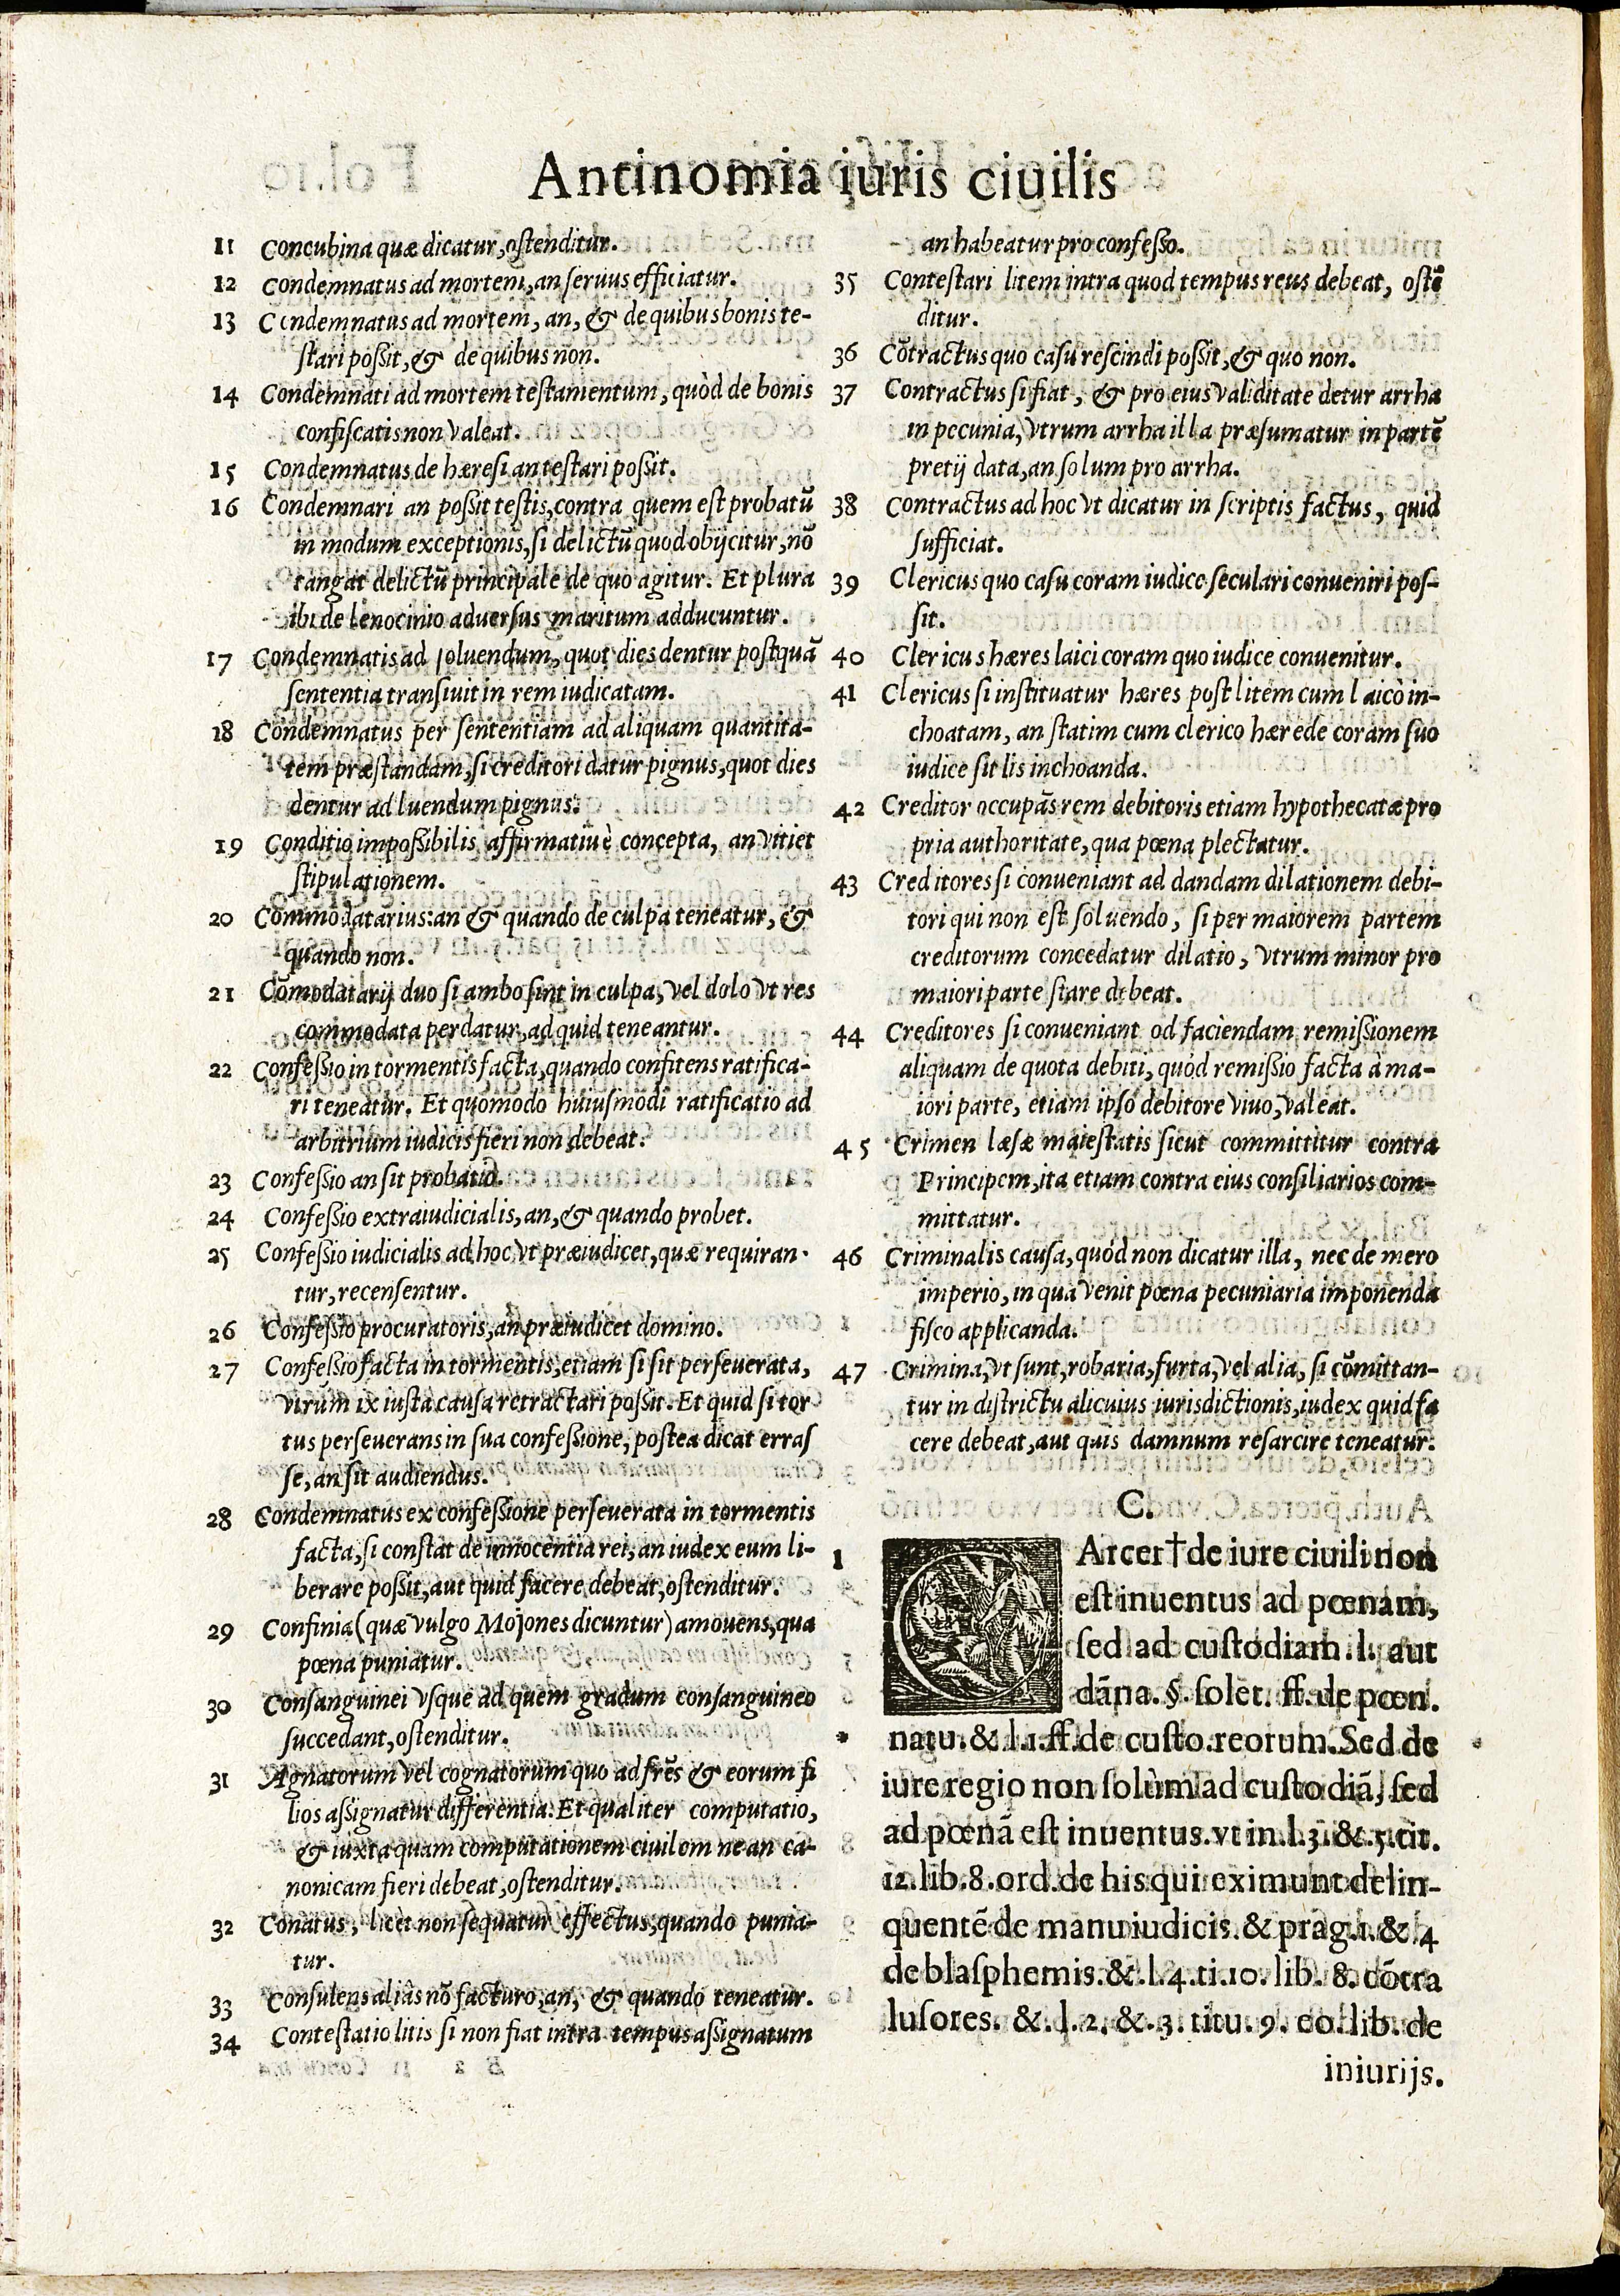 Antinomia iuris ciuilis
11 Concubina quæ dicatur, ostenditur.
12 Condemnatus ad mortem, an seruus efficiatur.
13 Condemnatus ad mortem, an, & de quibus bonis te-
stari possit, & de quibus non.
14 Condemnati ad mortem testamentum, quòd de bonis
confiscatis non valeat.
15 Condemnatus de hæresi an testari possit.
16 Condemnari an possit testis, contra quem est probatũ
in modum exceptionis, si delictũ quod obijcitur, nõ
tangat delictũ principale de quo agitur. Et plura
ibi de lenocinio aduersus maritum adducuntur.
17 Condemnatis ad soluendum, quot dies dentur postquã
sententia transiuit in rem iudicatam.
18 Condemnatus per sententiam ad aliquam quantita-
tem præstandam, si creditori datur pignus, quot dies
dentur ad luendum pignus.
19 Conditio impossibilis affirmatiuè concepta, an vitiet
stipulationem.
20 Commodatarius: an & quando de culpa teneatur, &
quando non.
21 Cõmodatarij duo si ambo sint in culpa, vel dolo vt res
commodata perdatur, ad quid teneantur.
22 Confessio in tormentis facta, quando confitens ratifica-
ri teneatur. Et quomodo huiusmodi ratificatio ad
arbitrium iudicis fieri non debeat.
23 Confessio an sit probatio.
24 Confessio extraiudicialis, an, & quando probet.
25 Confessio iudicialis ad hoc vt præiudicet, quæ requiran-
tur, recensentur.
26 Confessio procuratoris, an præiudicet domino.
27 Confessio facta in tormentis, etiam si sit perseuerata,
vtrùm ex iusta causa retractari possit. Et quid si tor
tus perseuerans in sua confessione, postea dicat erras
se, an sit audiendus.
28 Condemnatus ex confessione perseuerata in tormentis
facta, si constat de innocentia rei, an iudex eum li-
berare possit, aut quid facere debeat, ostenditur.
29 Confinia (quæ vulgo Mojones dicuntur) amouens, qua
pœna puniatur.
30 Consanguinei vsque ad quem gradum consanguineo
succedant, ostenditur.
31 Agnatorum vel cognatorum quo ad frẽs & eorum fi
lios assignatur differentia. Et qualiter computatio,
& iuxta quam computationem ciuilem ne an ca-
nonicam fieri debeat, ostenditur.
32 Conatus, licèt non sequatur effectus, quando punia-
tur.
33 Consulens aliàs nõ facturo, an, & quando teneatur.
34 Contestatio litis si non fiat intra tempus assignatum
an habeatur pro confesso.
35 Contestari litem intra quod tempus reus debeat, ostẽ
ditur.
36 Cõtractus quo casu rescindi possit, & quo non.
37 Contractus si fiat, & pro eius validitate detur arrha
in pecunia, vtrum arrha illa præsumatur in partẽ
pretij data, an solum pro arrha.
38 Contractus ad hoc vt dicatur in scriptis factus, quid
sufficiat.
39 Clericus quo casu coram iudice seculari conueniri pos-
sit.
40 Clericus hæres laici coram quo iudice conuenitur.
41 Clericus si instituatur hæres post litem cum laico in-
choatam, an statim cum clerico hærede coram suo
iudice sit lis inchoanda.
42 Creditor occupãs rem debitoris etiam hypothecatæ pro
pria authoritate, qua pœna plectatur.
43 Creditores si conueniant ad dandam dilationem debi-
tori qui non est soluendo, si per maiorem partem
creditorum concedatur dilatio, vtrum minor pro
maiori parte stare debeat.
44 Creditores si conueniant od faciendam remissionem
aliquam de quota debiti, quòd remissio facta à ma-
iori parte, etiam ipso debitore viuo, valeat.
45 Crimen læsæ maiestatis sicut committitur contra
Principem, ita etiam contra eius consiliarios com-
mittatur.
46 Criminalis causa, quòd non dicatur illa, nec de mero
imperio, in qua venit pœna pecuniaria imponenda
fisco applicanda.
47 Crimina, vt sunt, robaria, furta, vel alia, si cõmittan-
tur in districtu alicuius iurisdictionis, iudex quid fa
cere debeat, aut quis damnum resarcire teneatur.
C.
1 CArcer† de iure ciuili non
est inuentus ad pœnam,
sed ad custodiam. l. aut
dãna. §. solet. ff. de pœn.
natu. & l.1. ff. de custo. reorum. Sed de
iure regio non solùm ad custodiã, sed
ad pœnã est inuentus. vt in. l. 3. & 5. tit.
12. lib. 8. ord. de his qui eximunt delin-
quentẽ de manu iudicis. & prag. 1. & 4
de blasphemis. &. l. 4. ti. 10. lib. 8. cõtra
lusores. &. l. 2. &. 3. titu. 9. eo. lib. de
iniurijs.